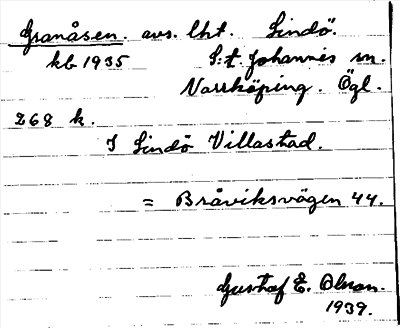 Granåsen. avs. lht. Lindö.
kb 1935 S:t Johannes sn.
Norrköping. Ögl.
268 k.
I Lindö Villastad.
= Bråviksvägen 44.
Gustaf E. Olson.
1939.